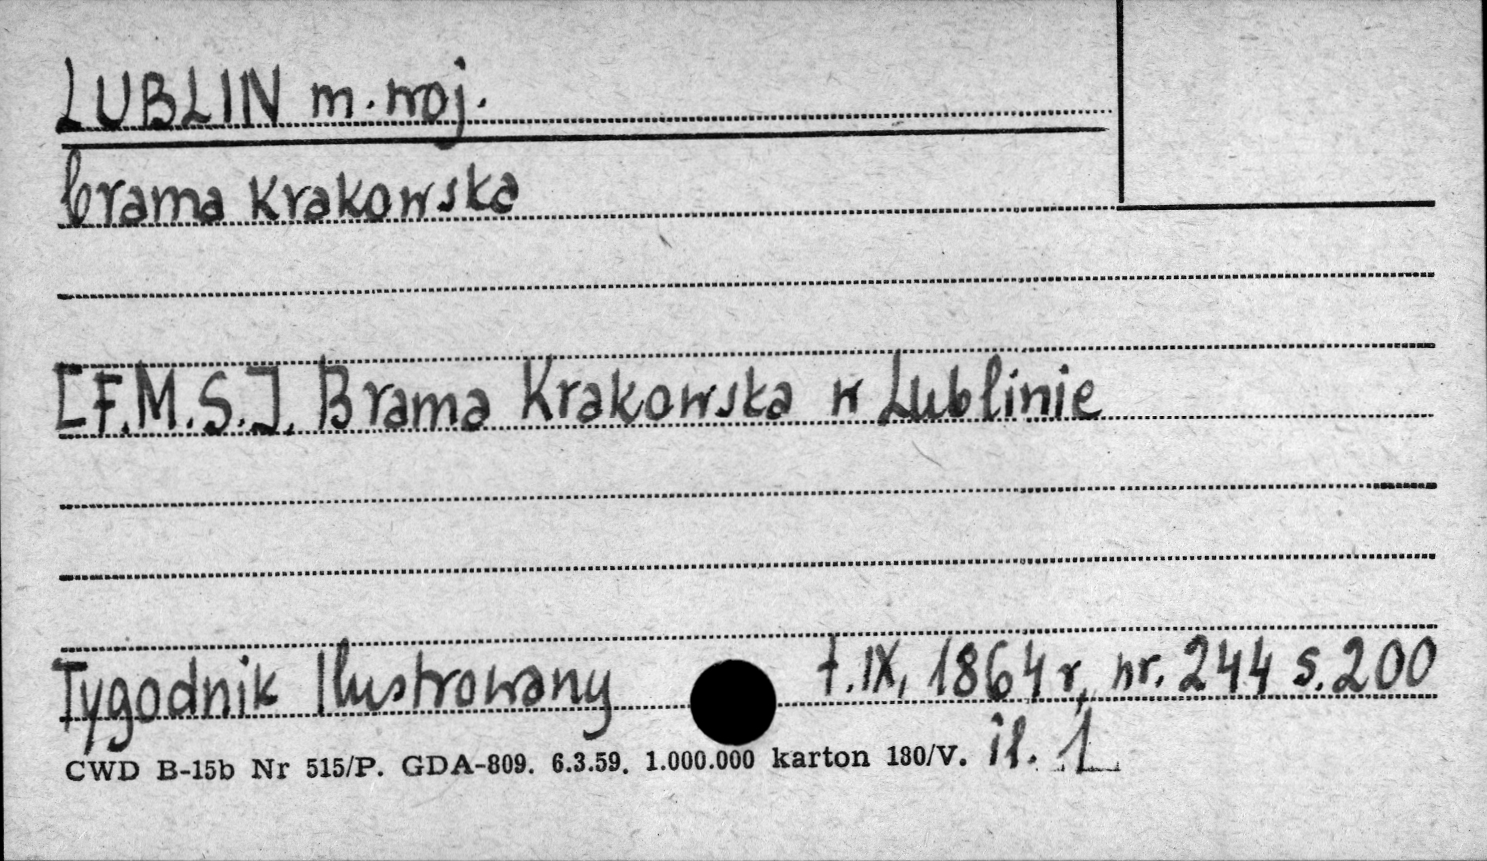 LUBLIN m. woj.
brama Krakowska
[F.M.S.]. Brama Krakowska w Lublinie
Tygodnik Ilustrowany t. IX, 1864 r, nr. 244 s. 200
CWD B-15b Nr 515/P. GDA-809. 6.3.59. 1.000.000 karton 180/V. il. 1